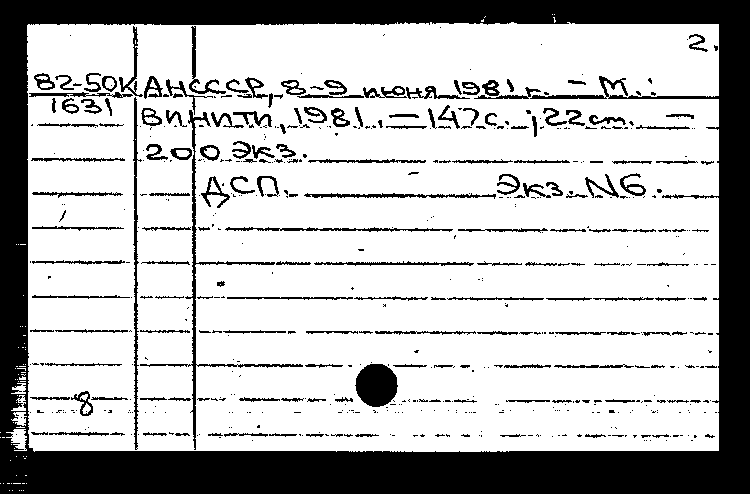 2.
82-50К АНСССР, 8-9 июня 1981 г. - М.:
1631 ВИНИТИ, 1981. - 147с. ; 22 cm. -
200 Экз.
ДСП. Экз. N6.
8